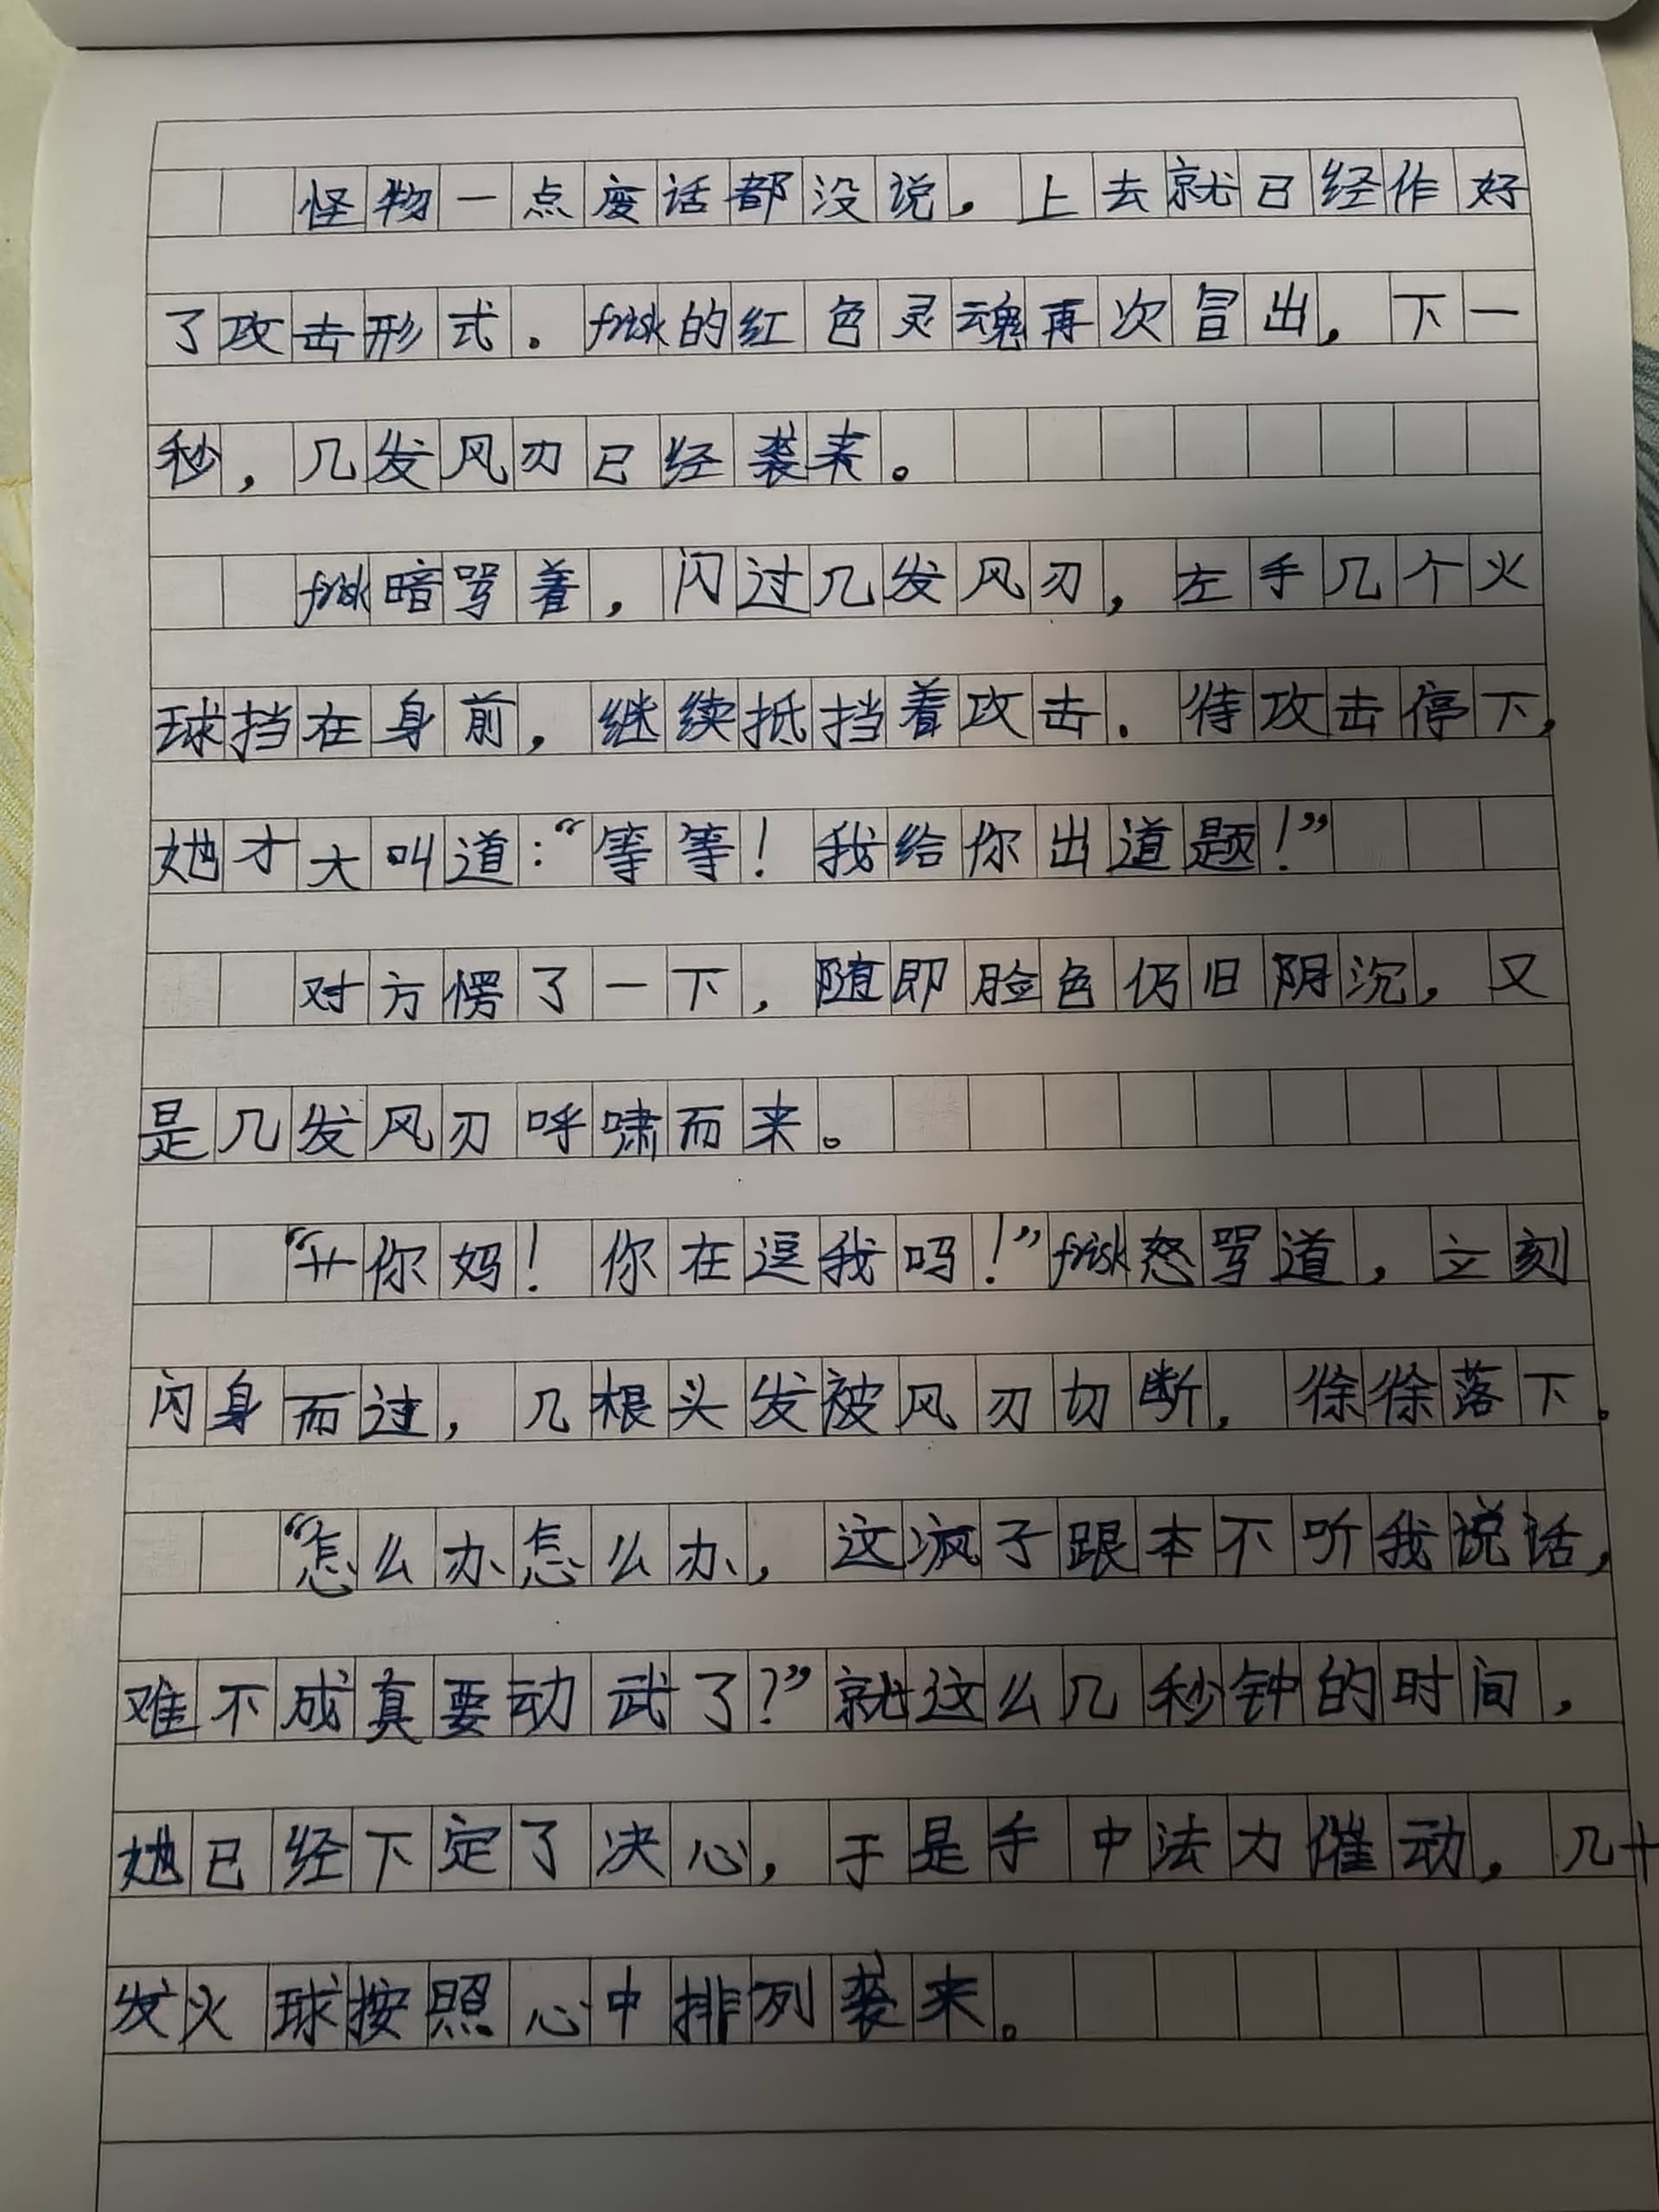 怪物一点废话都没说，上去就已经作好
了攻击形式．frisk的红色灵魂再次冒出，下一
秒，几发风刃已经袭来。
frisk暗骂着，闪过几发风刃，左手几个火
球挡在身前，继续抵挡着攻击．待攻击停下，
她才大叫道：“等等！我给你出道题！”
对方愣了一下，随即脸色仍旧阴沉，又
是几发风刃呼啸而来。
“艹你妈！你在逗我吗！”frisk怒骂道，立刻
闪身而过，几根头发被风刃切断，徐徐落下。
“怎么办怎么办，这疯子跟本不听我说话，
难不成真要动武了？”就这么几秒钟的时间，
她已经下定了决心，于是手中法力催动，几十
发火球按照心中排列袭来。